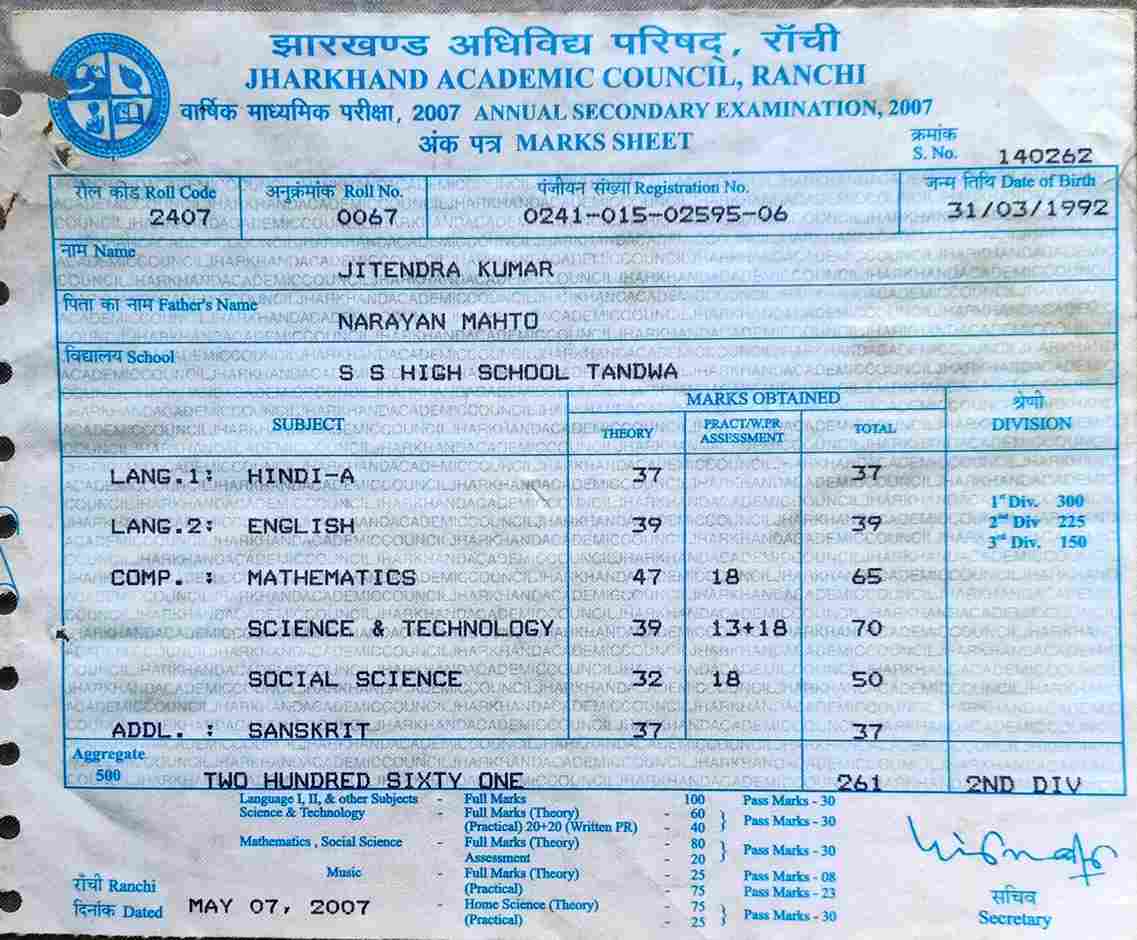 झारखण्ड अधिविद्य परिषद्, राँची
JHARKHAND ACADEMIC COUNCIL, RANCHI
वार्षिक माध्यमिक परीक्षा, 2007 ANNUAL SECONDARY EXAMINATION, 2007
अंक पत्र MARKS SHEET
क्रमांक
S. No. 140262
रोल कोड Roll Code अनुक्रमांक Roll No. पंजीयन संख्या Registration No. जन्म तिथि Date of Birth
2407 0067 0241-015-02595-06 31/03/1992
नाम Name
JITENDRA KUMAR
पिता का नाम Father's Name
NARAYAN MAHTO
विद्यालय School
S S HIGH SCHOOL TANDWA
SUBJECT MARKS OBTAINED श्रेणी
THEORY PRACT/W.PR ASSESSMENT TOTAL DIVISION
LANG.1: HINDI-A 37 37
1st Div. 300
LANG.2: ENGLISH 39 39 2nd Div 225
3rd Div. 150
COMP. : MATHEMATICS 47 18 65
SCIENCE & TECHNOLOGY 39 13+18 70
SOCIAL SCIENCE 32 18 50
ADDL. : SANSKRIT 37 37
Aggregate
500 TWO HUNDRED SIXTY ONE 261 2ND DIV
Language I, II, & other Subjects - Full Marks 100 Pass Marks - 30
Science & Technology - Full Marks (Theory) - 60
(Practical) 20+20 (Written PR) - 40 } Pass Marks - 30
Mathematics , Social Science - Full Marks (Theory) - 80
Assessment - 20 } Pass Marks - 30
Music - Full Marks (Theory) - 25 Pass Marks - 08
(Practical) - 75 Pass Marks - 23
- Home Science (Theory) - 75
(Practical) - 25 } Pass Marks - 30
राँची Ranchi
दिनांक Dated MAY 07, 2007
सचिव
Secretary